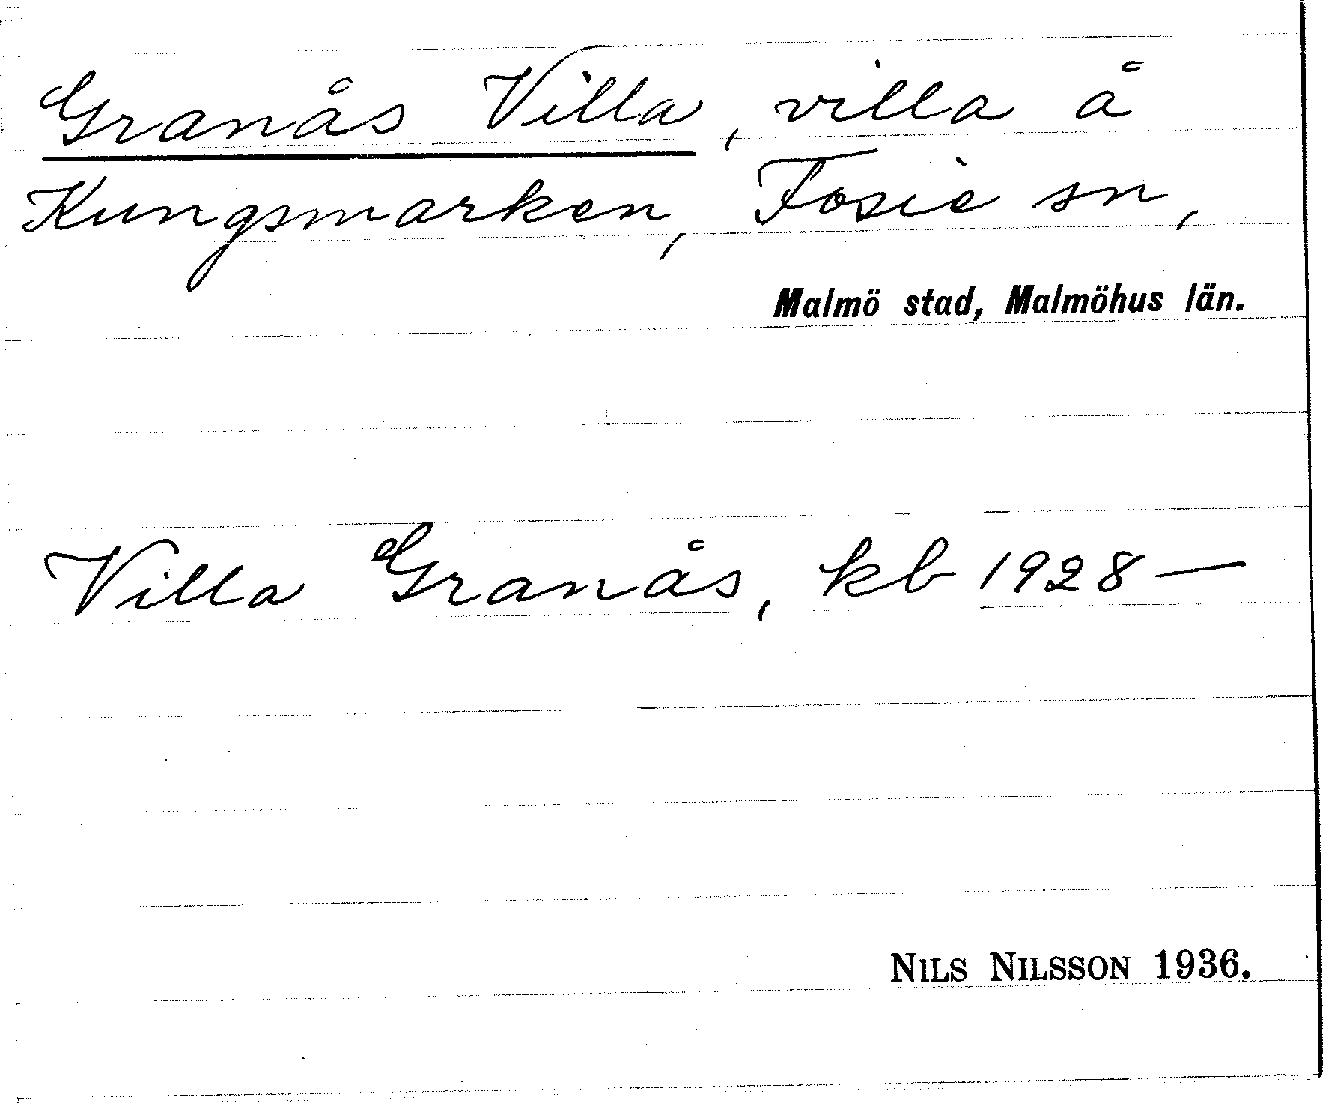 Granås Villa, villa å
Kungsmarken, Fosie sn,
Malmö stad, Malmöhus län.
Villa Granås, kb 1928—
NILS NILSSON 1936.